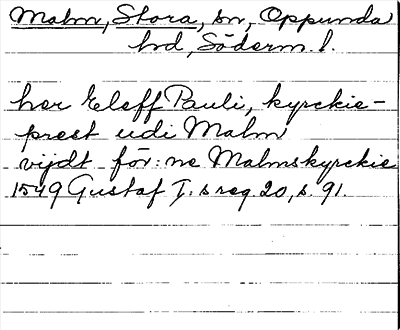 Malm, Stora, sn, Oppunda
hd, Söderm. l.
her Eleff Pauli, kyrckie-
prest udi Malm
vijdt för: ne Malmskyrckie
1549 Gustaf I: s reg. 20, s. 91.